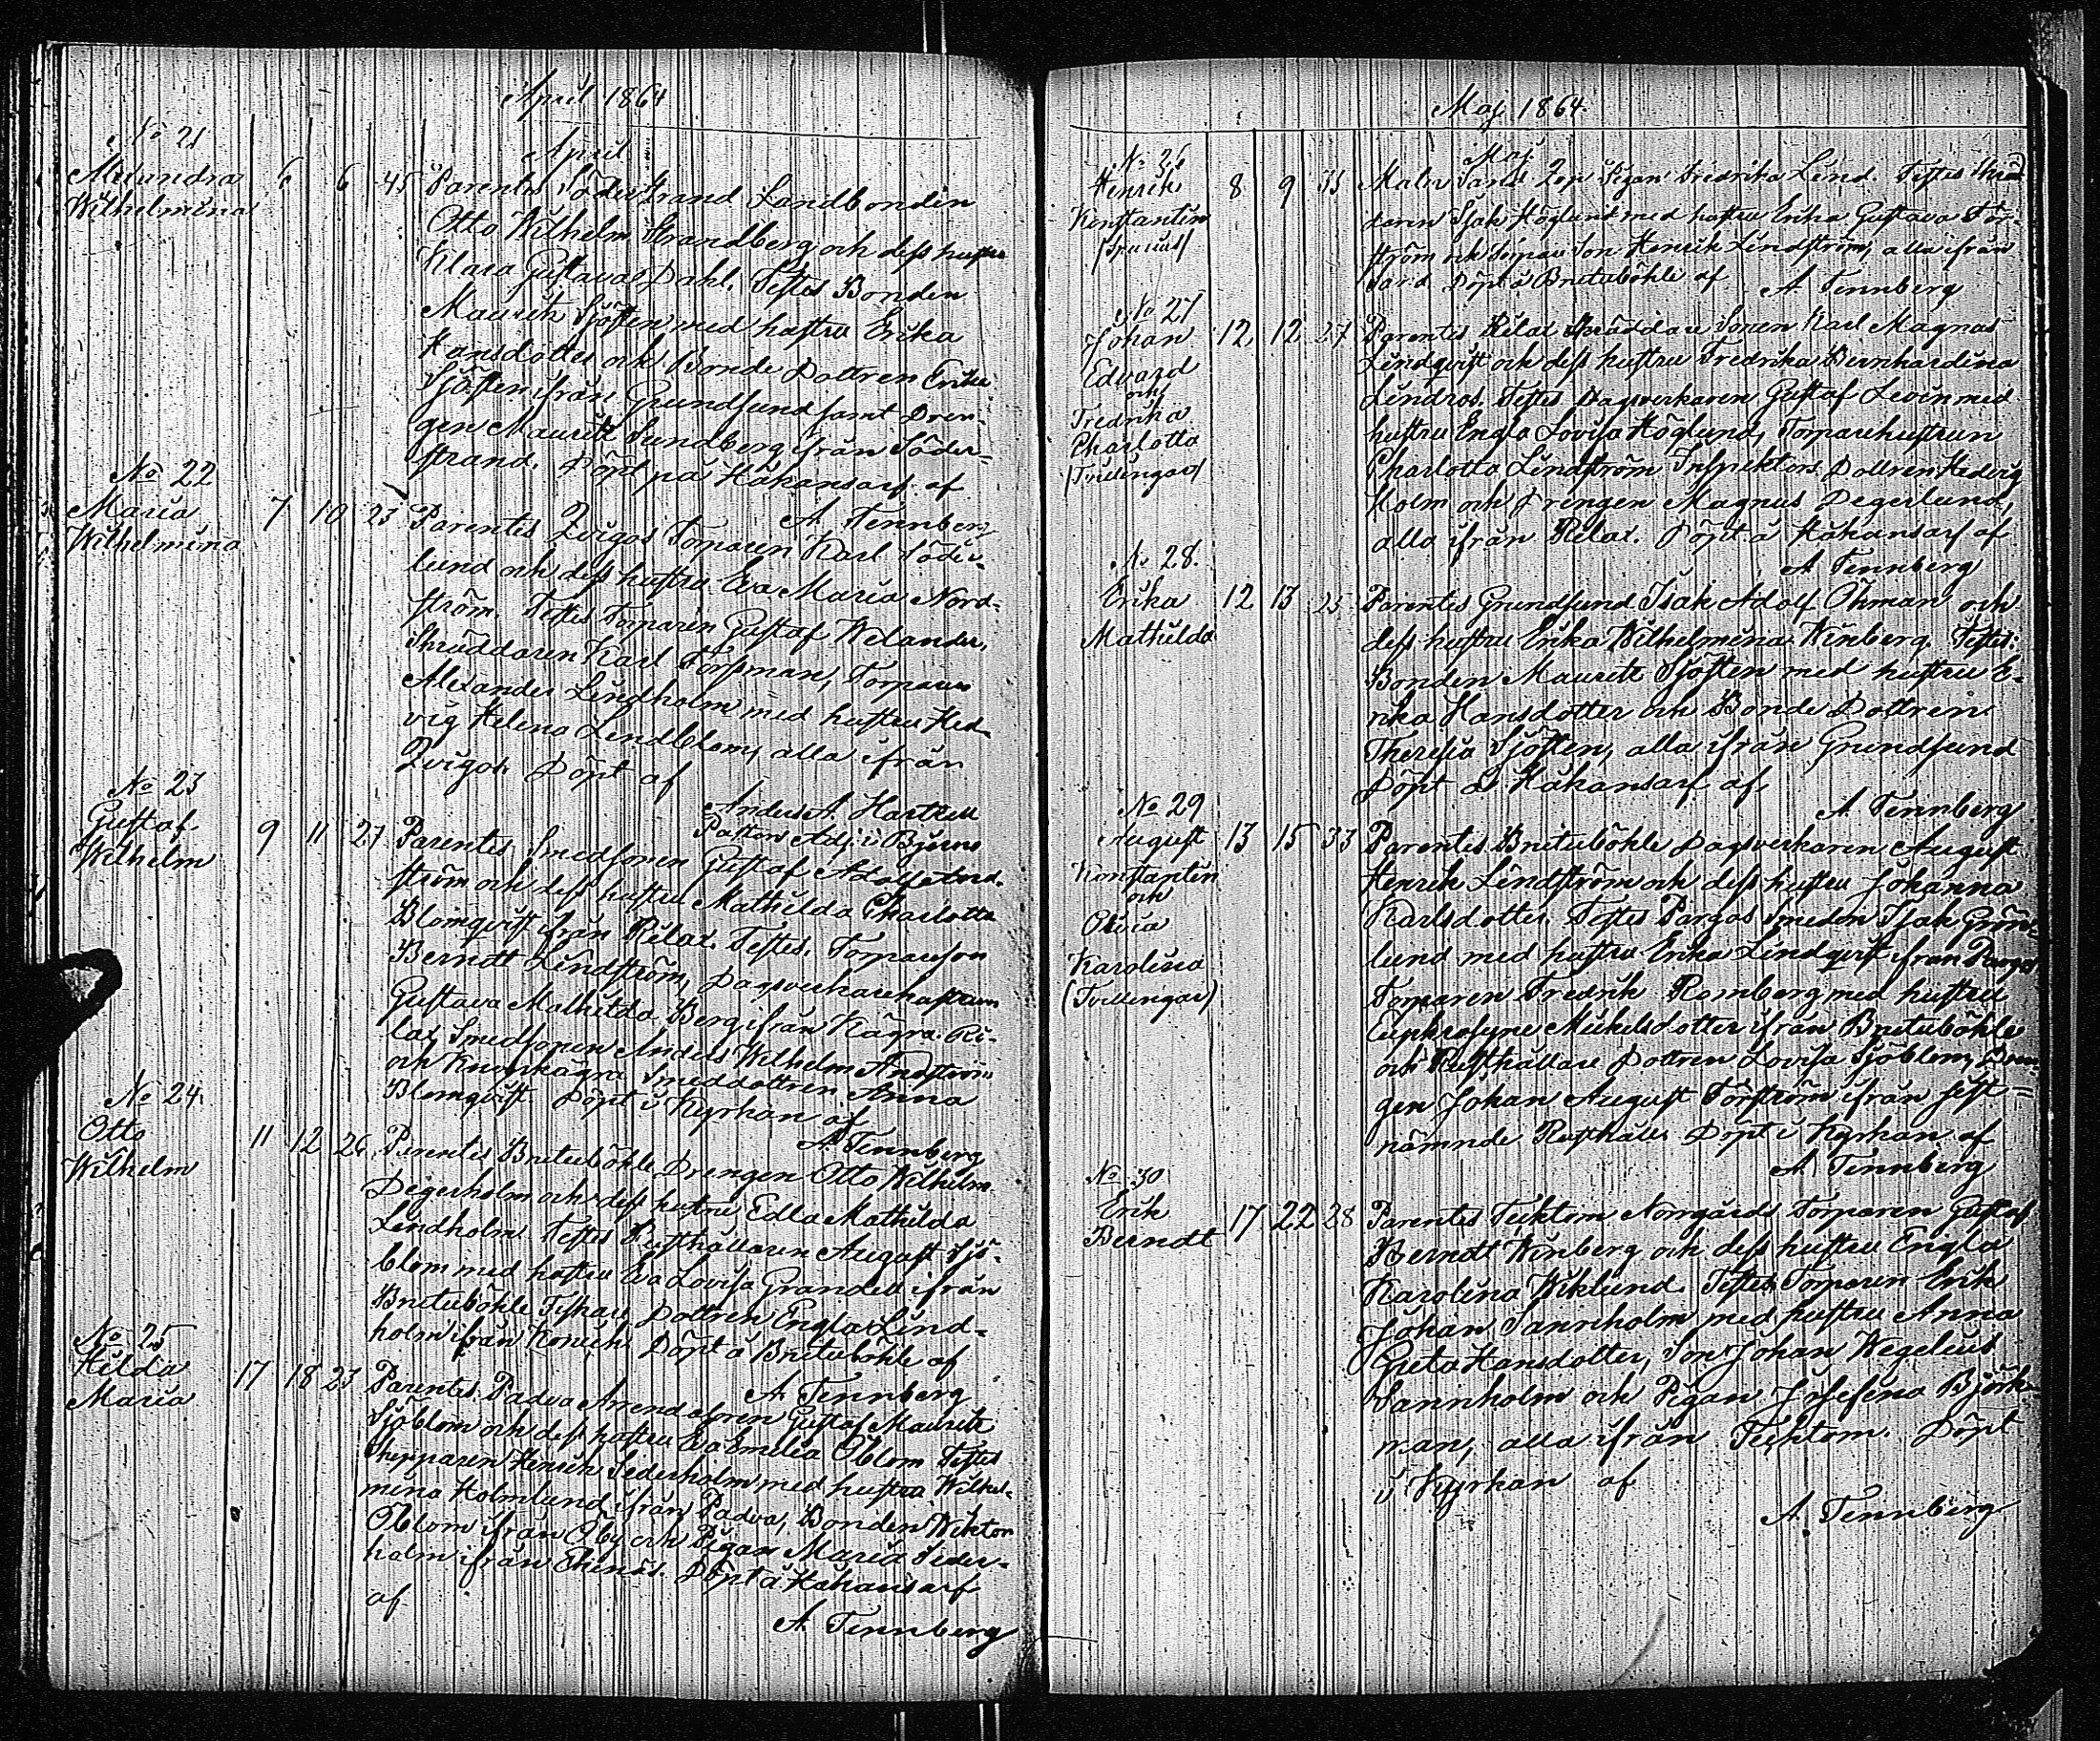 April 1864
April
No 21
Alexandra 6 6 45 Parentes Söderstrand Landbonden
Wilhelmina
Otto Wilhelm Strandberg och dess hustru
Klara Gustava Dahl. Testes Bonden
Maurits Sjösten med hustru Erika
Hansdotter och Bonde Dottren Erika
Sjösten ifrån Grundsund samt Dren-
gen Maurits Sundberg ifrån Söder-
strand. Döpt på Håkansarf af
A. Tennberg
No 22
Maria 7 10 25 Parentes Torparen Karl Söder-
Wilhelmina
lund och dess hustru Eva Maria Nord-
ström. Testes Torparen Gustaf Welander,
Skräddaren Karl Forssman, Torparen
Alexander Lindholm med hustru Hed-
vig Helena Lindblom, alla ifrån
Döpt af
Anders A.
Pastors Adj. i Bjerno
No 23
Gustaf 9 11 27 Parentes Smedsonen Gustaf Adolf
Wilhelm
ström och dess hustru Mathilda Charlotta
Blomqvist ifrån Rilax. Testes. Torpareson
Berndt Lindström, Dagsverkarehustrun
Gustava Mathilda Berg ifrån Kägra Ri-
lax Smedsonen Anders Wilhelm
och Smeddottren Anna
Blomqvist Döpt i Kyrkan af
A. Tennberg
No 24.
Otto 11 12 26 Parentes Bretaböhle Drengen Otto Wilhelm
Wilhelm
Degerholm och dess hustru Edla Mathilda
Lindholm Testes Rusthållaren August Sjö-
blom med hustru Eva Lovisa Grandell ifrån
Bretaböhle Fiskare Dottren Engla Lind-
holm ifrån Döpt å Bretaböhle af
A. Tennberg
No 25
Hilda 17 18 23 Parentes. Padva Arendatoren Gustaf Maurits
Maria
Sjöblom och dess hustru Eva Emilia Öblom Testes
Skepparen Henrik Sederholm med hustru Wilhel-
mina Holmlund ifrån Padva, Bonden Wiktor
Öblom ifrån Öby och Pigan Maria Seder-
holm ifrån Döpt å Håkansarf
af
A. Tennberg
Maj 1864.
Maj
No 26
Henrik 8 9 33 Pigan Fredrika Lind. Testes Skräd
Konstantin daren Isak Höglund med hustru Erika Gustava För-
(spurius) ström och Torpare Son Henrik Lindström, alla ifrån
Döpt å Bretaböhle af A. Tennberg
No 27
Johan 12 12 27 Parentes Rilax Skräddare Sonen Karl Magnus
Edvard Lindqvist och dess hustru Fredrika Bernhardina
och
Fredrika Lindros. Testes Dagsverkaren Gustaf Levin med
Charlotta hustru Engla Lovisa Höglund, Torparehustrun
(Tvillingar) Charlotta Lindström Inspektors Dottren Hedvig
Holm och Drengen Magnus Degerlund,
alla ifrån Rilax. Döpt å Håkansarf af
A. Tennberg
No 28.
Erika 12 13 25 Parentes Grundsund Isak Adolf Öhman och
Mathilda dess hustru Erika Wilhelmina Winberg. Testes:
Bonden Maurits Sjösten med hustru E-
rika Hansdotter och Bonde Dottren
Theresia Sjösten, alla ifrån Grundsund
Döpt å Håkansarf af
A. Tennberg
No 29
August 13 15 33 Parentes Bretaböhle Dagsverkaren August
Konstantin Henrik Lindström och dess hustru Johanna
och
Olivia Karlsdotter. Testes Pargas Smeden Isak Grön-
Karolina lund med hustru Erika Lindqvist ifrån Pargas
(Tvillingar) Torparen Fredrik Romberg med hustru
Euphrosyne Mikelsdotter ifrån Bretaböhle
och Rusthållare Dottren Lovisa Sjöblom, Dren-
gen Johan August Förström ifrån sist-
nämnde Rusthåll. Döpt i Kyrkan af
A. Tennberg
No 30
Erik 17 22 28 Parentes Tecktom Norrgårds Torparen Gustaf
Berndt Berndt Winberg och dess hustru Engla
Karolina Wiklund. Testes Torparen Erik
Johan Sannholm med hustru Anna
Greta Hansdotter, Son Johan Wegelius
Sannholm och Pigan Josefina Björk-
man, alla ifrån Tecktom. Döpt
i Kyrkan af
A. Tennberg